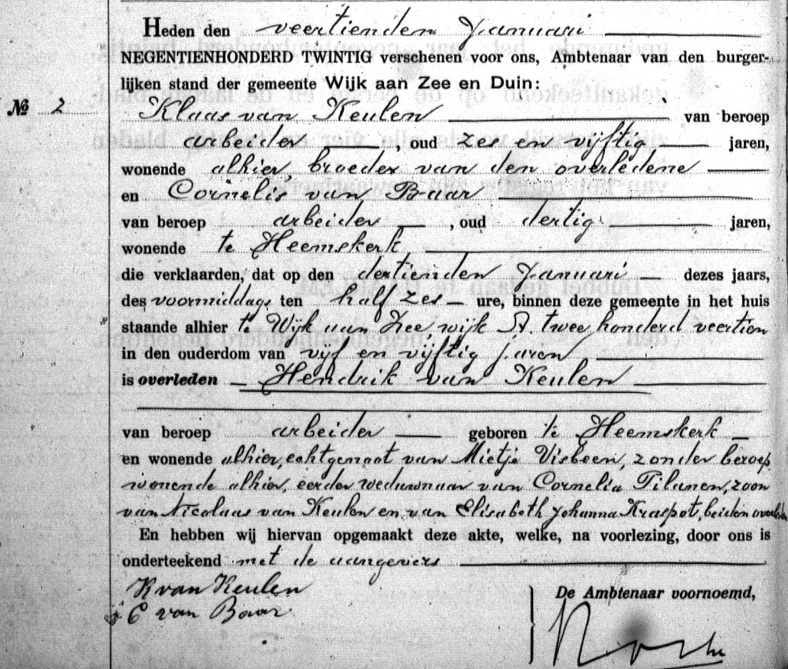 Heden den veertienden Januari
NEGENTIENHONDERD TWINTIG verschenen voor ons, Ambtenaar van den burger-
lijken stand der gemeente Wijk aan Zee en Duin:
№ 2
Klaas van Keulen van beroep
arbeider, oud zes en vijftig jaren,
wonende alhier, broeder van den overledene
en Cornelis van Baar
van beroep arbeider, oud dertig jaren,
wonende te Heemskerk
die verklaarden, dat op den dertienden Januari dezes jaars,
des voormiddags ten half zes ure, binnen deze gemeente in het huis
staande alhier te Wijk aan Zee wijk A. twee honderd veertien
in den ouderdom van vijf en vijftig jaren
is overleden Hendrik van Keulen
van beroep arbeider geboren te Heemskerk
en wonende alhier, echtgenoot van Mietje Visbeen, zonder beroep
wonende alhier, eerder weduwnaar van Cornelia Tilanen, zoon
van Nicolaas van Keulen en van Elisabeth Johanna Kraspot, beiden overleden
En hebben wij hiervan opgemaakt deze akte, welke, na voorlezing, door ons is
onderteekend met de aangevers
K van Keulen
C van Baar
De Ambtenaar voornoemd,